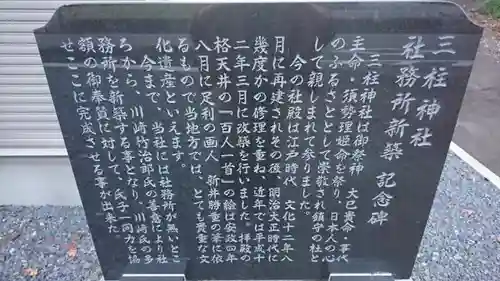 三柱神社
社務所新築 記念碑
三柱神社は御祭神 大己貴命・事代
主命・須勢理姫命を祭り、日本人の心
のふるさととして崇敬され鎮守の社と
して親しまれて参りました。
今の社殿は江戸時代 文化十二年八
月に再建されその後、明治大正時代に
幾度かの修理を重ね、近年では平成十
二年三月に改築を行いました。拝殿の
格天井の「百人一首」の絵は安政四年
八月に足利の画人 新井勝重の筆に依
るもので当地方では、とても貴重な文
化遺産といえます。
今まで、当社には社務所が無いとこ
ろから、川﨑竹治郎氏の善意により社
務所を新築する事となり、川﨑氏の多
額の御奉賛に対して、氏子一同力を協
せここに完成させる事が出来た。